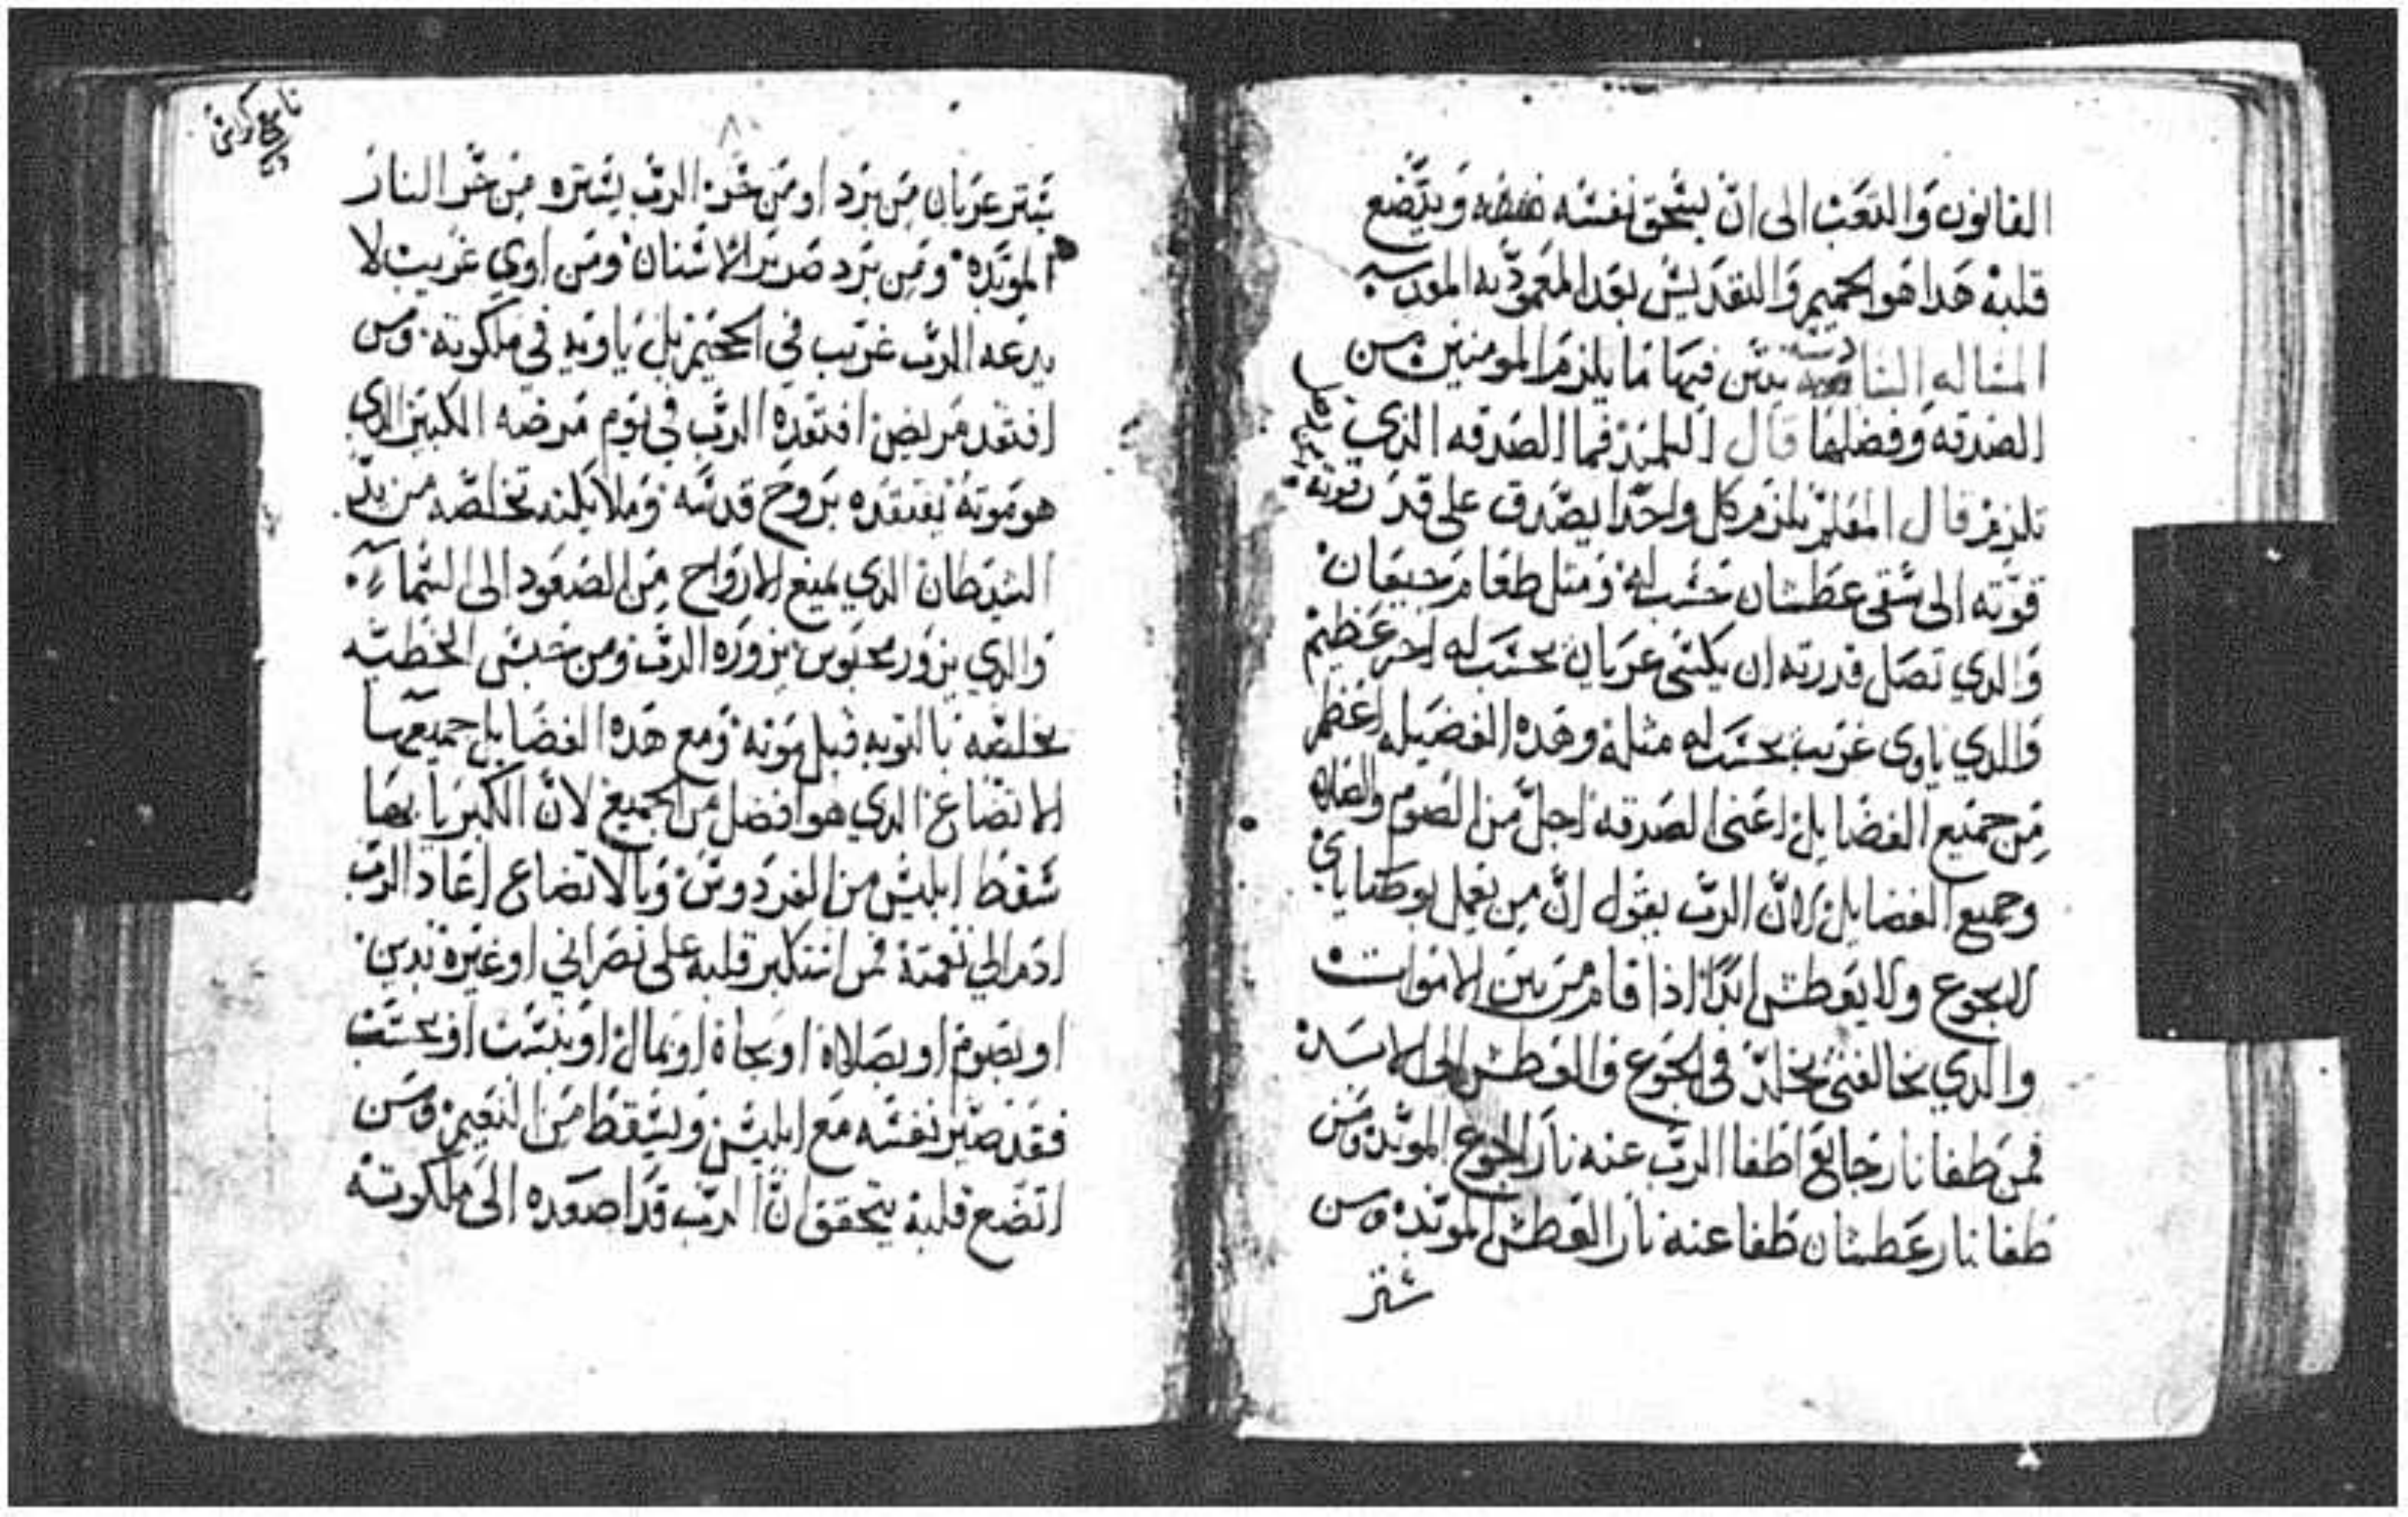 القانون والتعب الى ان يسحق نفسه ويتضع
قلبه هدا هو الحميم والتقديس بعد المعموديه المقدسه
المساله السادسه نبين فيها ما يلزم المومنين من
الصدقه وفضلها قال التلميذ فما الصدقه الذي
تلزم قال المعلم يلزم كل واحدا يصدق على قدر قوته
قوته الى سقى عطشان تحسب له ومثل طعام جيعان
والدي تصل قدرته ان يكسى عريان يحسب له اجر عظيم
والدي ياوى غريب يحسب له مثله وهده الفضيله اعظم
من جميع الفضايل اعنى الصدقه اجل من الصوم والصلاه
وجميع الفضايل لان الرب يقول ان من يعمل بوصاياي
لا يجوع ولا يعطش ابدا اذا قام من بين الاموات
والدي يخالفنى يخلد فى الجوع والعطش الى الابد
فمن طفا نار جايع اطفا الرب عنه نار الجوع الموبد ومن
طفا نار عطشان طفا عنه نار العطش الموبد ومن
ستر
يستر عريان من برد او من حر الرب يستره من حر النار
الموبده ومن برد صرير الاسنان ومن اوي غريب لا
يدعه الرب غريب في الجحيم بل ياويه في ملكوته ومن
افتقد مريض افتقده الرب في يوم مرضه الكبير الدي
هو موته يفتقده بروح قدسه وملايكته تخلصه من يد
الشيطان الدي يمنع الارواح من الصعود الى السماء
والدي يزور محبوس يزوره الرب ومن حبس الخطيه
يخلصه باالتوبه قبل موته ومع هده الفضايل جميعها
الاتضاع الدي هو افضل من الجميع لان الكبريا بها
سقط ابليس من الفردوس وبالاتضاع اعاد الرب
ادم الي نعمته فمن استكبر قلبه على نصراني او غيره بدين
او بصوم او بصلاه او بجاه او بمال او بنسب او بحسب
فقد صير نفسه مع ابليس ويسقط من النعيم ومن
اتضع قلبه يتحقق ان الرب قد اصعده الى ملكوته